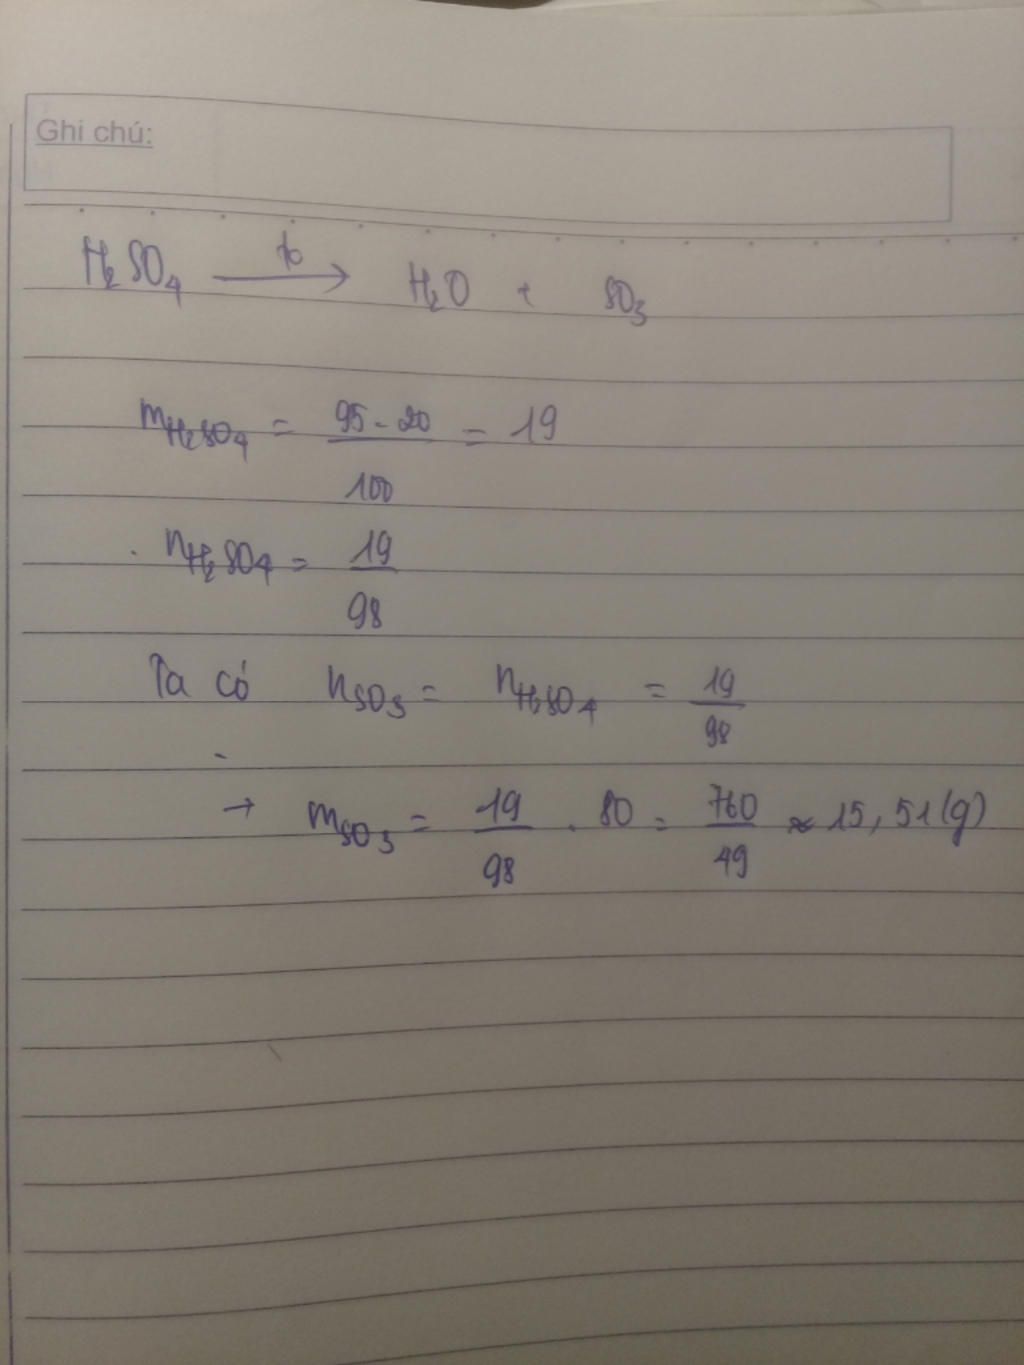 Ghi chú:
H₂SO₄ —t°→ H₂O + SO₃
mH₂SO₄ = 95.20/100 = 19
nH₂SO₄ = 19/98
Ta có nSO₃ = nH₂SO₄ = 19/98
→ mSO₃ = 19/98 . 80 = 760/49 ≈ 15,51(g)